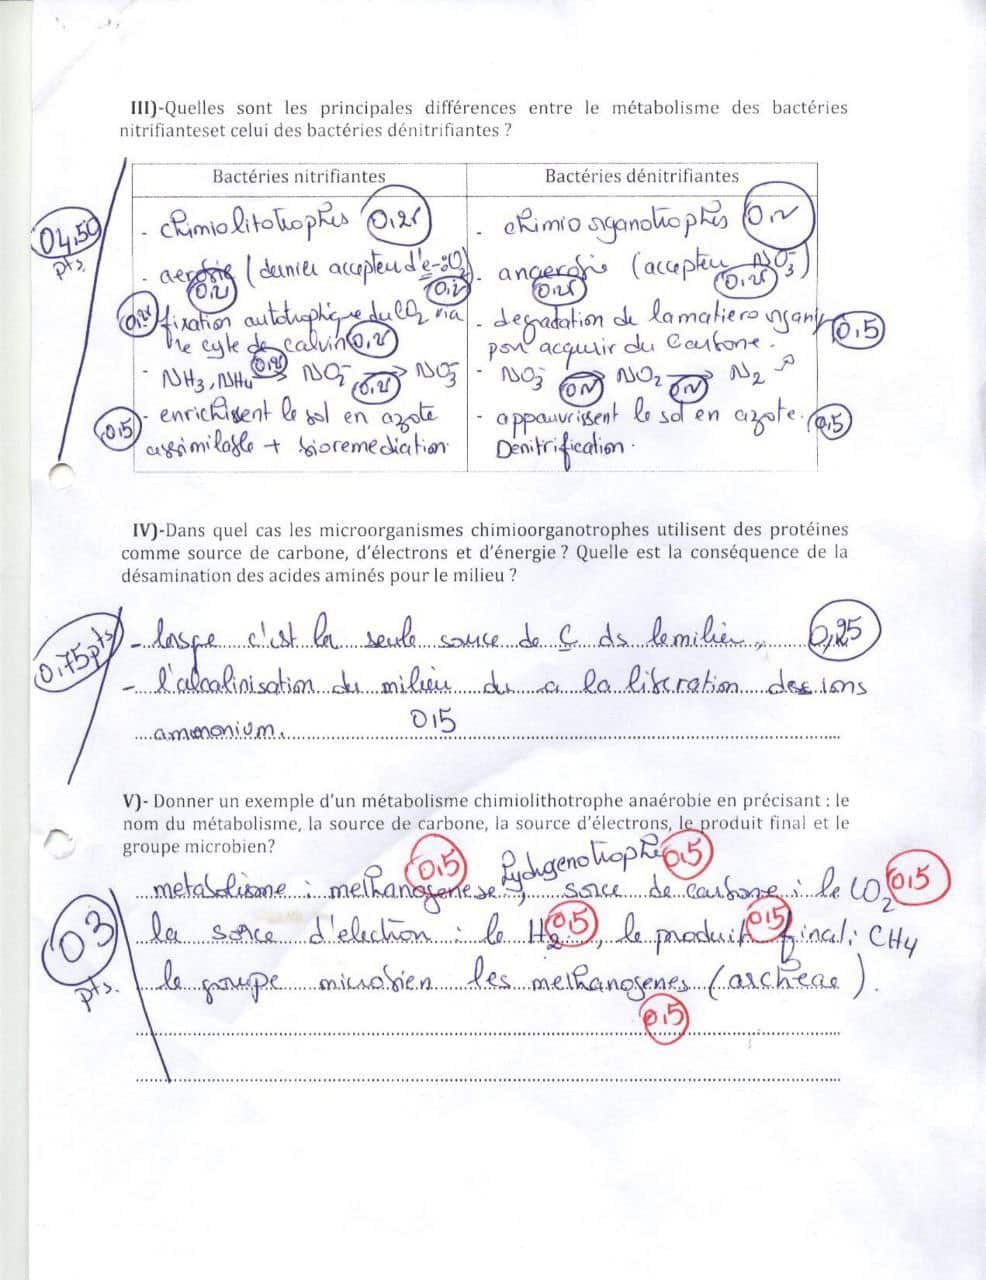 III)-Quelles sont les principales différences entre le métabolisme des bactéries
nitrifianteset celui des bactéries dénitrifiantes ?
04,50
pts.
Bactéries nitrifiantes
- chimiolitotrophes 0,25
- aerobie (dernier accepteur d'e-:O2)
0,25 0,25
0,25 fixation autotrophique du CO2 via
le cyle de calvin 0,25
- NH3, NH4 → NO2- → NO3-
0,25 0,25
0,5 - enrichissent le sol en azote
assimilable + bioremediation.
Bactéries dénitrifiantes
- chimioorganotrophes 0,25
- anaerobie (accepteur NO3-)
0,25 0,25
- degradation de la matiere organiq 0,5
pour acquerir du Carbone.
- NO3- → NO2- → N2 ↗
0,25 0,25
- appauvrissent le sol en azote. 0,5
Denitrification.
IV)-Dans quel cas les microorganismes chimioorganotrophes utilisent des protéines
comme source de carbone, d'électrons et d'énergie ? Quelle est la conséquence de la
désamination des acides aminés pour le milieu ?
0.75pts
- lorsque c'est la seule source de C ds le milieu, 0,25
- l'alcalinisation du milieu du a la liberation des ions
ammonium. 0,5
V)- Donner un exemple d'un métabolisme chimiolithotrophe anaérobie en précisant : le
nom du métabolisme, la source de carbone, la source d'électrons, le produit final et le
groupe microbien?
03
pts.
0,5 hydrogenotrophe 0,5
metabolisme : methanogenese, sorce de carbone : le CO2 0,5
la sorce d'election : le H2 0,5, le produit 0,5 final : CH4
le groupe microbien les methanogenes (archeae).
0,5